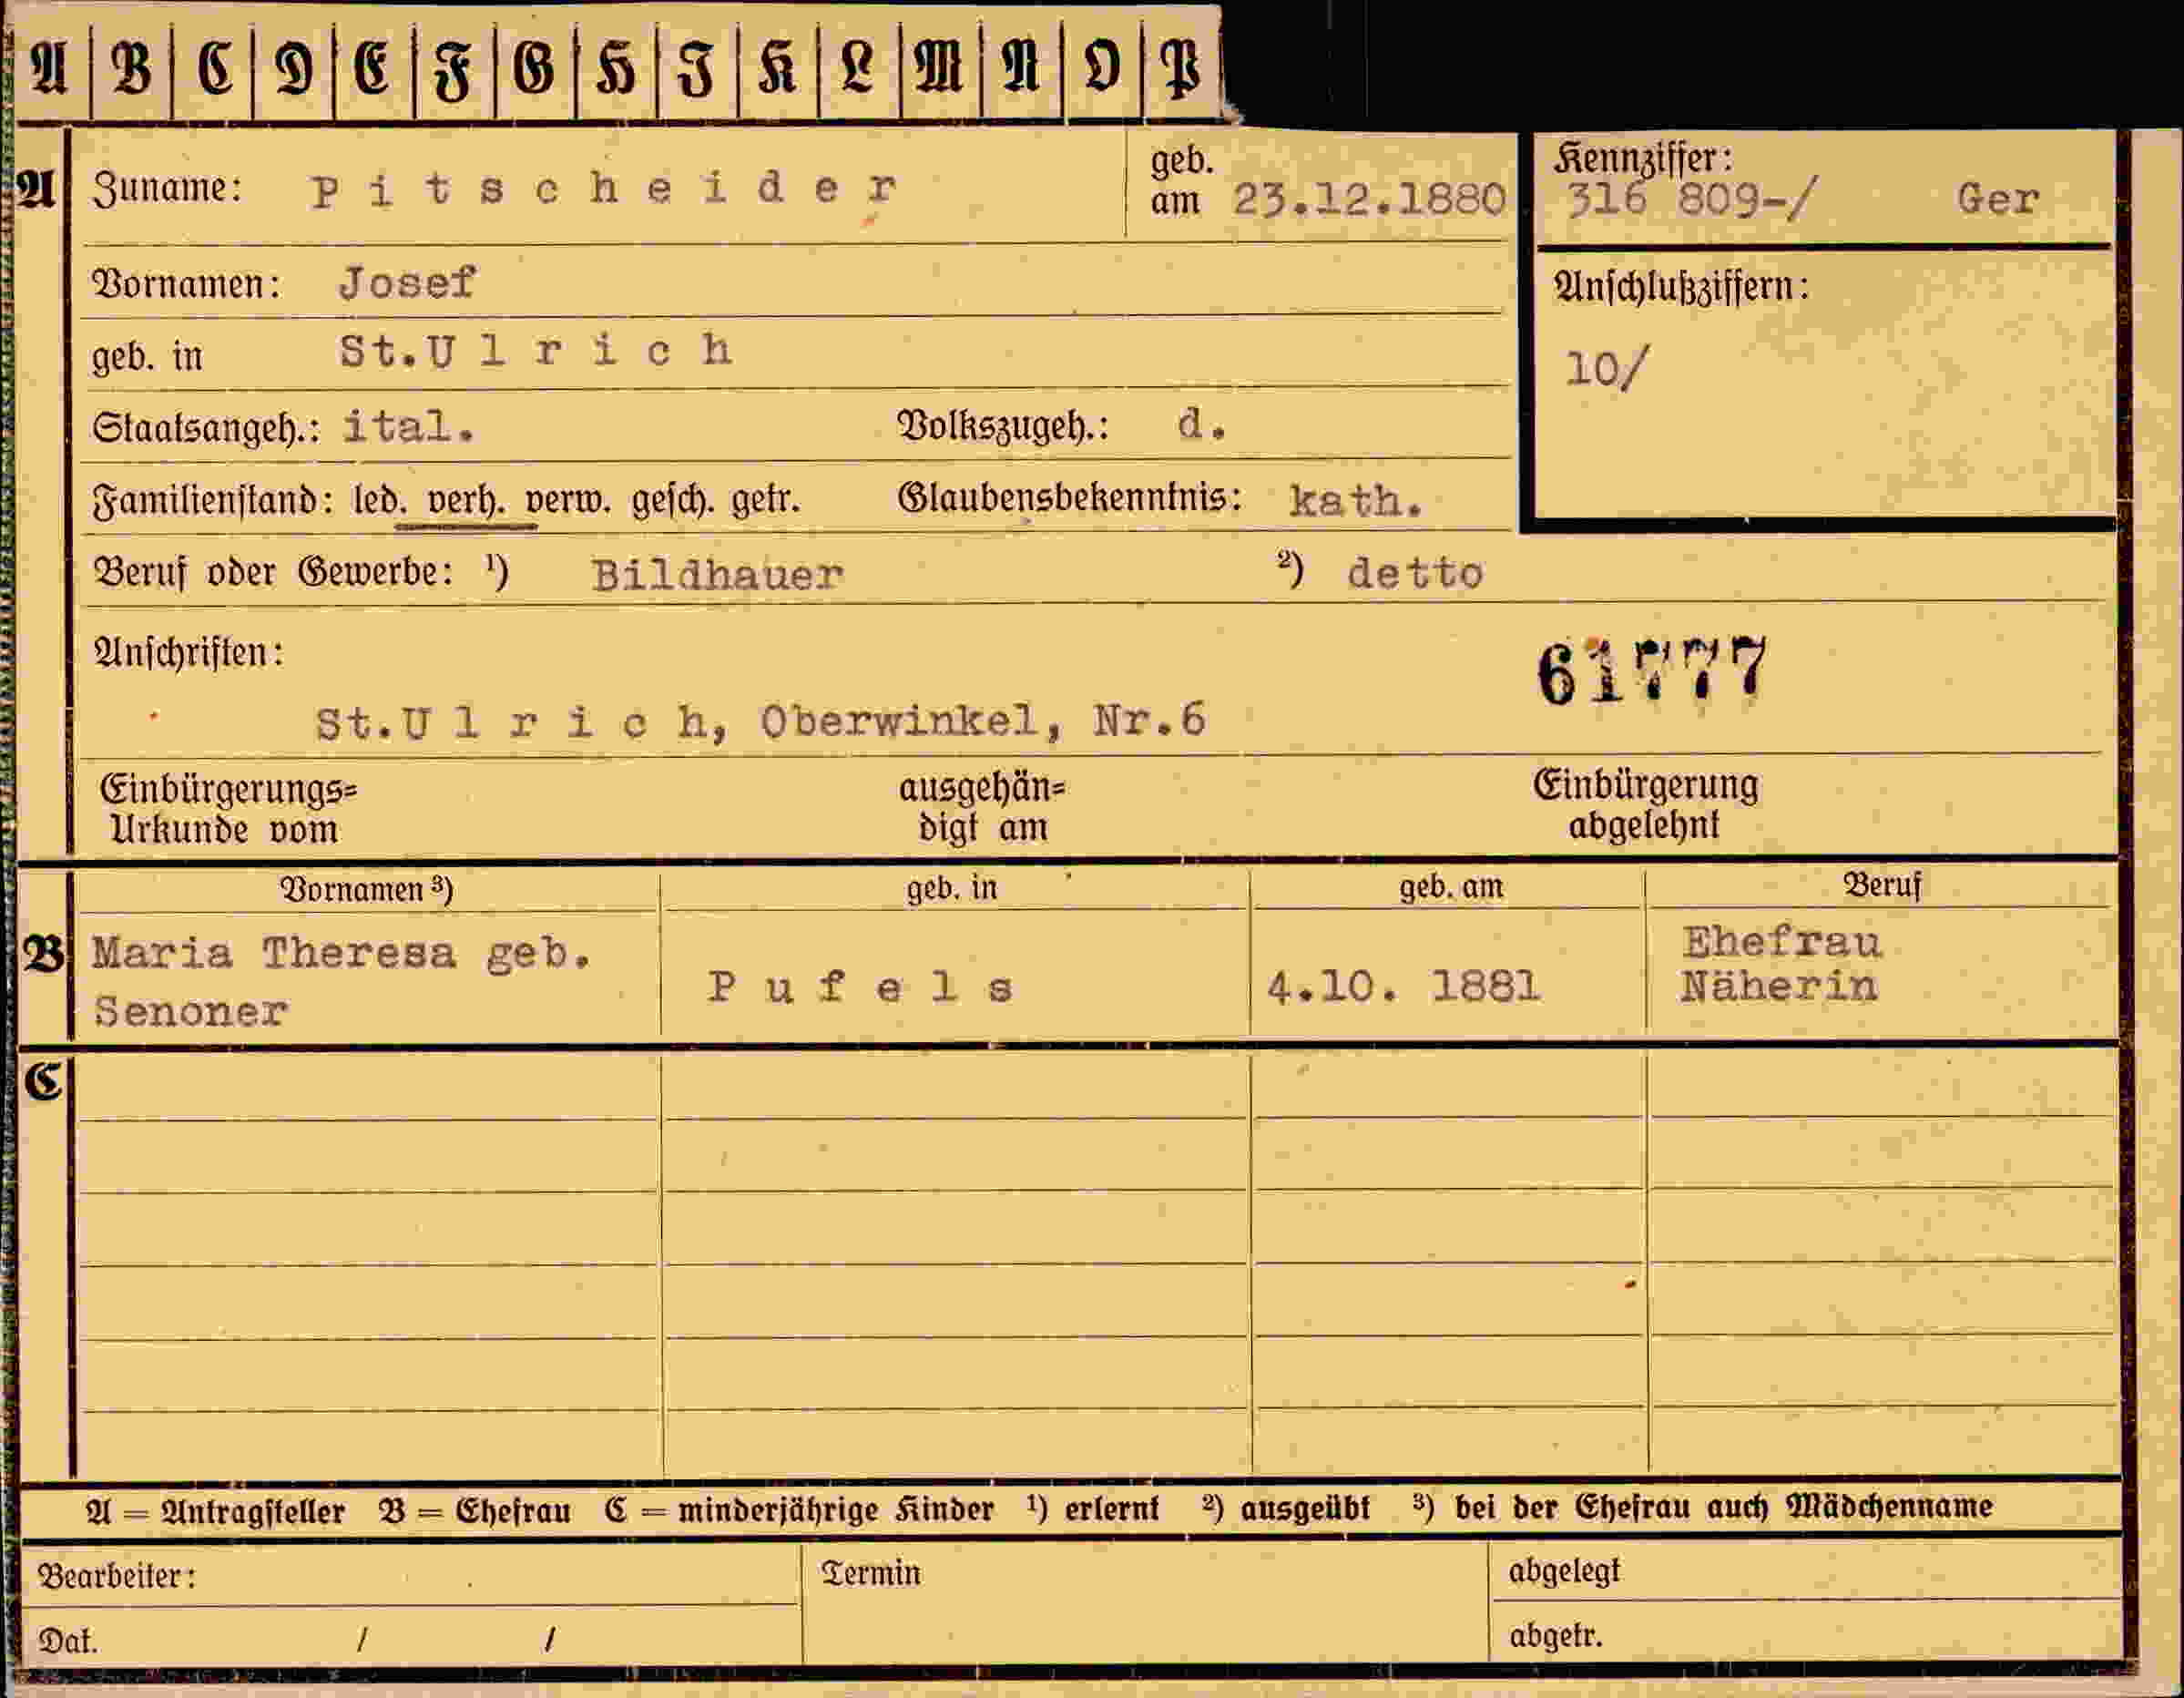 A B C D E F G H I K L M N O P
A Zuname: Pitscheider geb. am 23.12.1880 Kennziffer: 316 809-/ Ger
Vornamen: Josef Anschlußziffern:
geb. in St.Ulrich 10/
Staatsangeh.: ital. Volkszugeh.: d.
Familienstand: led. verh. verw. gesch. getr. Glaubensbekenntnis: kath.
Beruf oder Gewerbe: ¹) Bildhauer ²) detto
Anschriften: 61777
St.Ulrich, Oberwinkel, Nr.6
Einbürgerungs= ausgehän= Einbürgerung
Urkunde vom digt am abgelehnt
Vornamen ³) geb. in geb. am Beruf
B Maria Theresa geb. Ehefrau
Senoner Pufels 4.10. 1881 Näherin
C
A = Antragsteller B = Ehefrau C = minderjährige Kinder ¹) erlernt ²) ausgeübt ³) bei der Ehefrau auch Mädchenname
Bearbeiter: Termin abgelegt
Dat. / / abgetr.